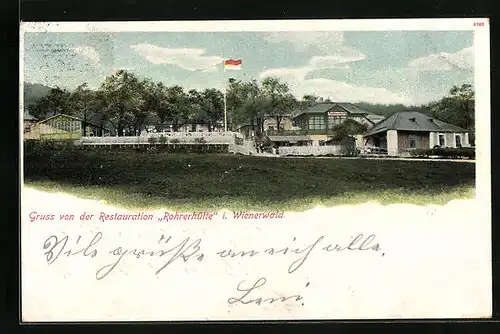 6785
Gruss von der Restauration „Rohrerhütte" i. Wienerwald.
Vile grüße an eich alle.
Leni.